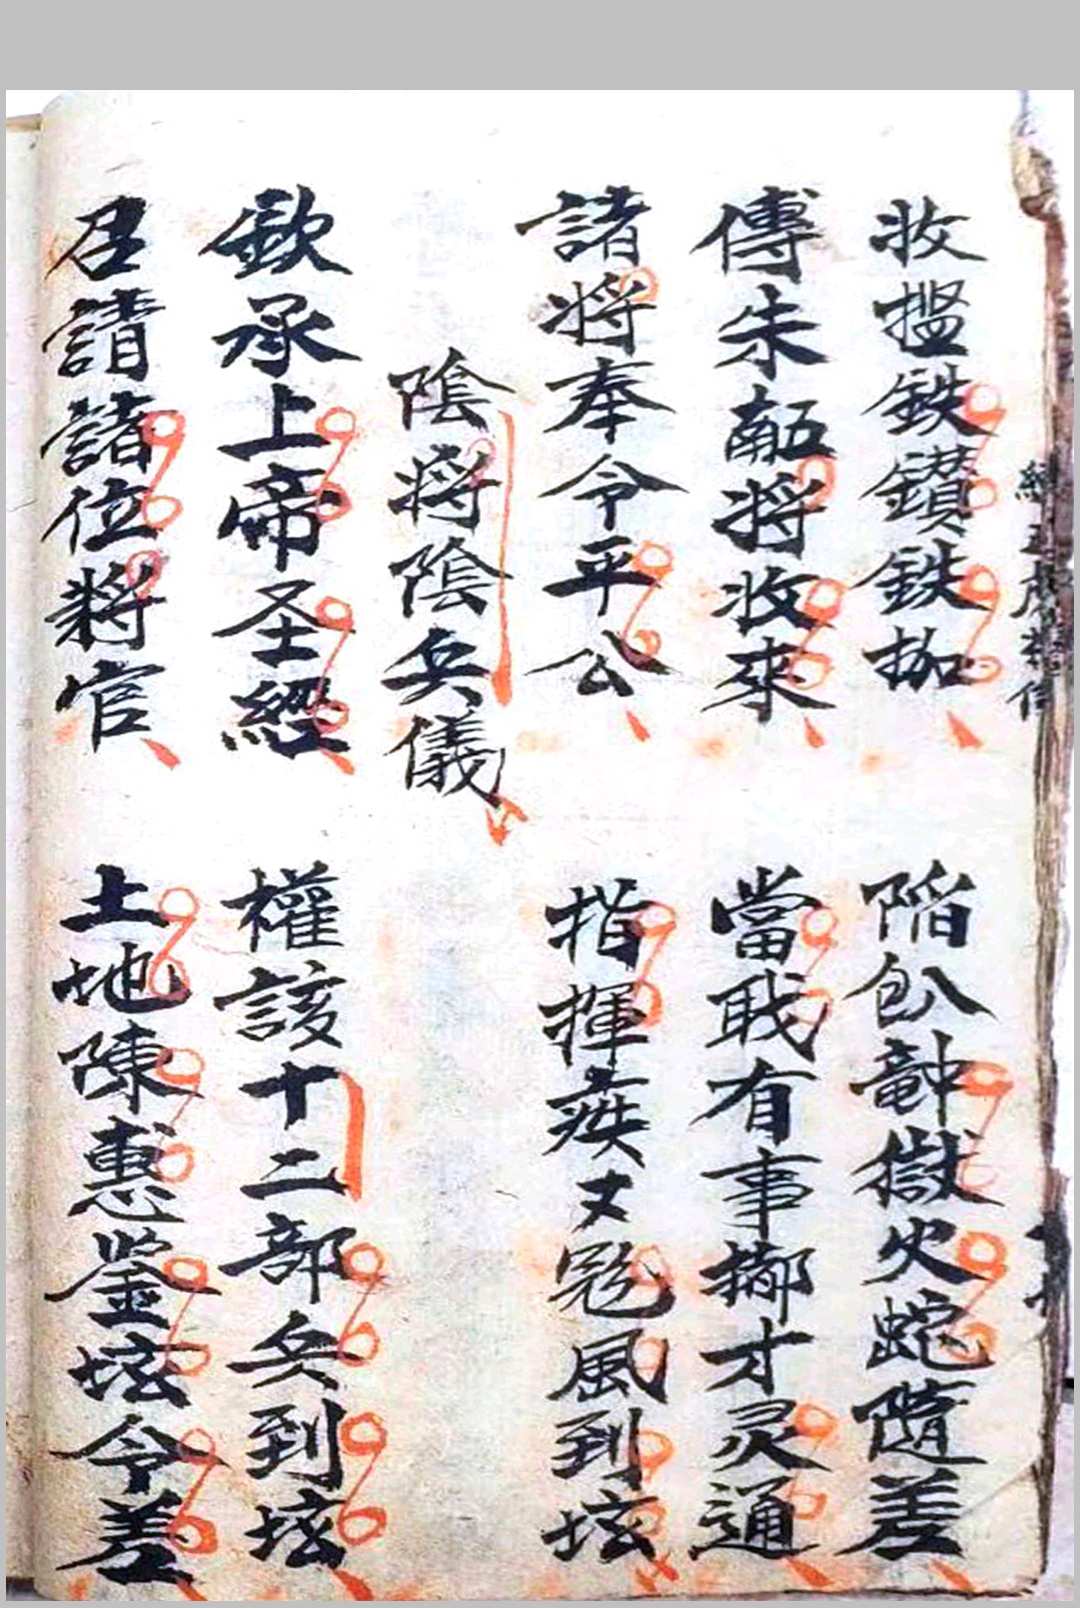 收搵鉄鑽鉄枷
陷獄火蛇隨差
傅朱將收來
當有事才灵通
諸將奉令平公
指揮疾風到坛
陰將陰兵儀
欽承上帝圣經
權該十二部兵到坛
召請諸位將官
土地陳惠鉴坛令差